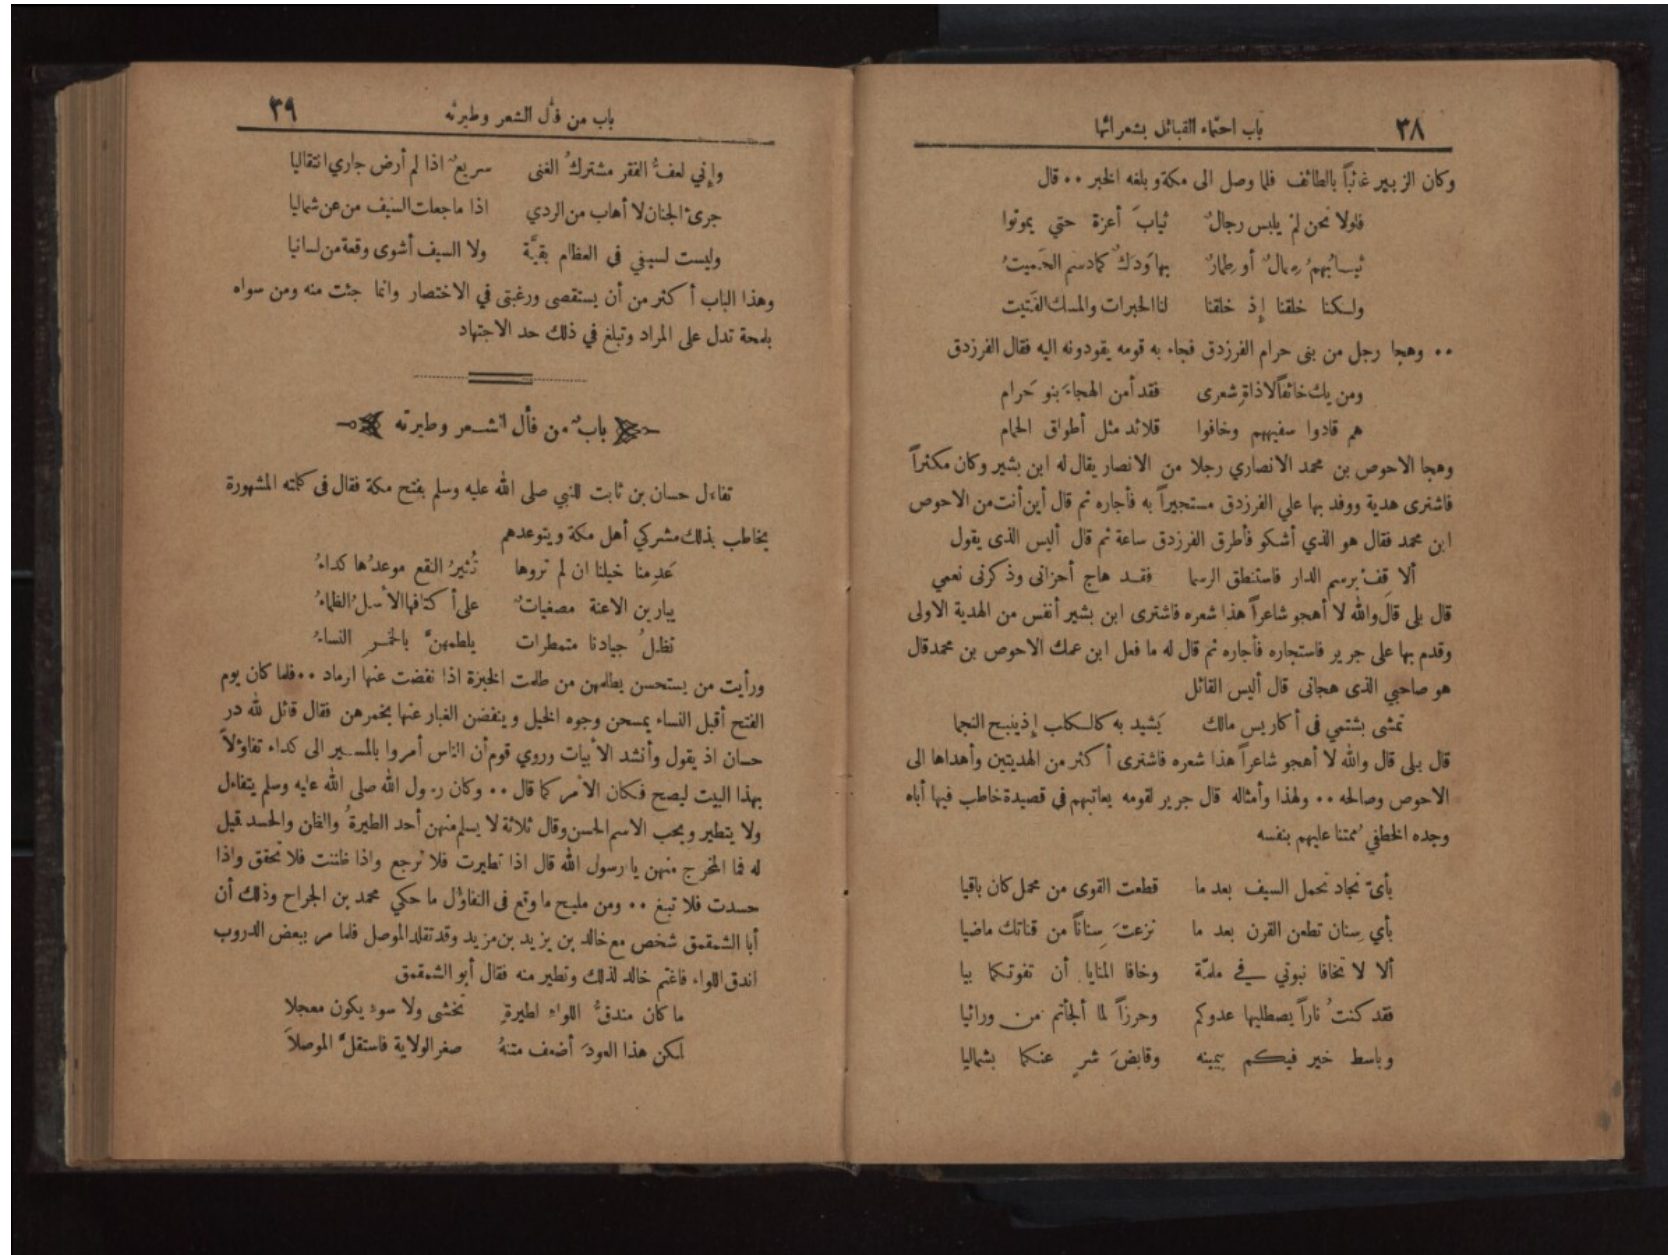 ٣٨ باب احتماء القبائل بشعرائها
وكان الزبير غائباً بالطائف فلما وصل الى مكة وبلغه الخبر ٠٠ قال
فلولا نحن لم يلبس رجالٌ ثيابَ أعزة حتي يموتوا
ثيابُهمُ سِمالٌ أو طِمارٌ بها وَدَكٌ كما دسم الحَميتُ
ولكنا خلقنا إذ خلقنا لنا الحبرات والمسك الفَتيت
٠٠ وهجا رجل من بنى حرام الفرزدق فجاء به قومه يقودونه اليه فقال الفرزدق
ومن يك خائفاً لاذاةِ شعرى فقد أمن الهجاءَ بنو حَرام
هم قادوا سفيههم وخافوا قلائد مثل أطواق الحمام
وهجا الاحوص بن محمد الانصاري رجلا من الانصار يقال له ابن بشير وكان مكثراً
فاشترى هدية ووفد بها علي الفرزدق مستجيراً به فأجاره ثم قال أين أنت من الاحوص
ابن محمد فقال هو الذي أشكو فأطرق الفرزدق ساعة ثم قال أليس الذى يقول
ألا قِفْ برسم الدار فاستنطق الرسما فقد هاج أحزانى وذكرنى نعمي
قال بلى قال والله لا أهجو شاعراً هذا شعره فاشترى ابن بشير أنفس من الهدية الاولى
وقدم بها على جرير فاستجاره فأجاره ثم قال له ما فعل ابن عمك الاحوص بن محمد قال
هو صاحبي الذى هجانى قال أليس القائل
تمشى بشتمي فى أكاريس مالك يَشيد به كالكلب إذ ينبح النجما
قال بلى قال والله لا أهجو شاعراً هذا شعره فاشترى أكثر من الهديتين وأهداها الى
الاحوص وصالحه ٠٠ ولهذا وأمثاله قال جرير لقومه يعاتبهم في قصيدة خاطب فيها أباه
وجده الخطفي ممتنا عليهم بنفسه
بأىّ نجاد تحمل السيف بعد ما قطعت القوى من محمل كان باقيا
بأي سِنان تطعن القرن بعد ما نزعتَ سِناناً من قناتك ماضيا
ألا لا تخافا نبوتي في ملمّة وخافا المنايا أن تفوتكما بيا
فقد كنتُ ناراً يصطليها عدوكم وحرزاً لما ألجأتم من ورائيا
وباسط خير فيكم بيمينه وقابضَ شرٍ عنكما بشماليا
باب من فأل الشعر وطيرته ٣٩
وإني لعفُّ الفقر مشتركُ الغنى سريعٌ اذا لم أرض جاري انتقاليا
جرئ الجنان لا أهاب من الردي اذا ما جعلت السيف من عن شماليا
وليست لسيفي فى العظام بقيَّة ولا السيف أشوى وقعة من لسانيا
وهذا الباب أكثر من أن يستقصى ورغبتى في الاختصار وانما جئت منه ومن سواه
بلمحة تدل على المراد وتبلغ في ذلك حد الاجتهاد
باب من فأل الشعر وطيرته
تفاءل حسان بن ثابت للنبي صلى الله عليه وسلم بفتح مكة فقال فى كلمته المشهورة
يخاطب بذلك مشركي أهل مكة ويتوعدهم
عَدِمنا خيلنا ان لم تروها تُثيرُ النقع موعدُها كداءُ
يبارين الاعنة مصغياتٌ على أكتافها الأسلُ الظماءُ
تظلُ جيادنا متمطرات يلطمهنّ بالخمرِ النساءُ
ورأيت من يستحسن يطلمهن من طلمت الخبزة اذا نفضت عنها الرماد ٠٠ فلما كان يوم
الفتح أقبل النساء يمسحن وجوه الخيل وينفضن الغبار عنها بخمرهن فقال قائل لله در
حسان اذ يقول وأنشد الأبيات وروي قوم أن الناس أمروا بالمسير الى كداء تفاؤلاً
بهذا البيت ليصح فكان الأمر كما قال ٠٠ وكان رسول الله صلى الله عليه وسلم يتفاءل
ولا يتطير ويحب الاسم الحسن وقال ثلاثة لا يسلم منهن أحد الطيرةُ والظن والحسد قيل
له فما المخرج منهن يا رسول الله قال اذا تطيرت فلا ترجع واذا ظننت فلا تحقق واذا
حسدت فلا تبغ ٠٠ ومن مليح ما وقع فى التفاؤل ما حكي محمد بن الجراح وذلك أن
أبا الشمقمق شخص مع خالد بن يزيد بن مزيد وقد تقلد الموصل فلما مر ببعض الدروب
اندق اللواء فاغتم خالد لذلك وتطير منه فقال أبو الشمقمق
ما كان مندقُّ اللواءِ لطيرةٍ تخشى ولا سوء يكون معجلا
لكن هذا العودَ أضعف متنهُ صغر الولاية فاستقلَّ الموصلاَ